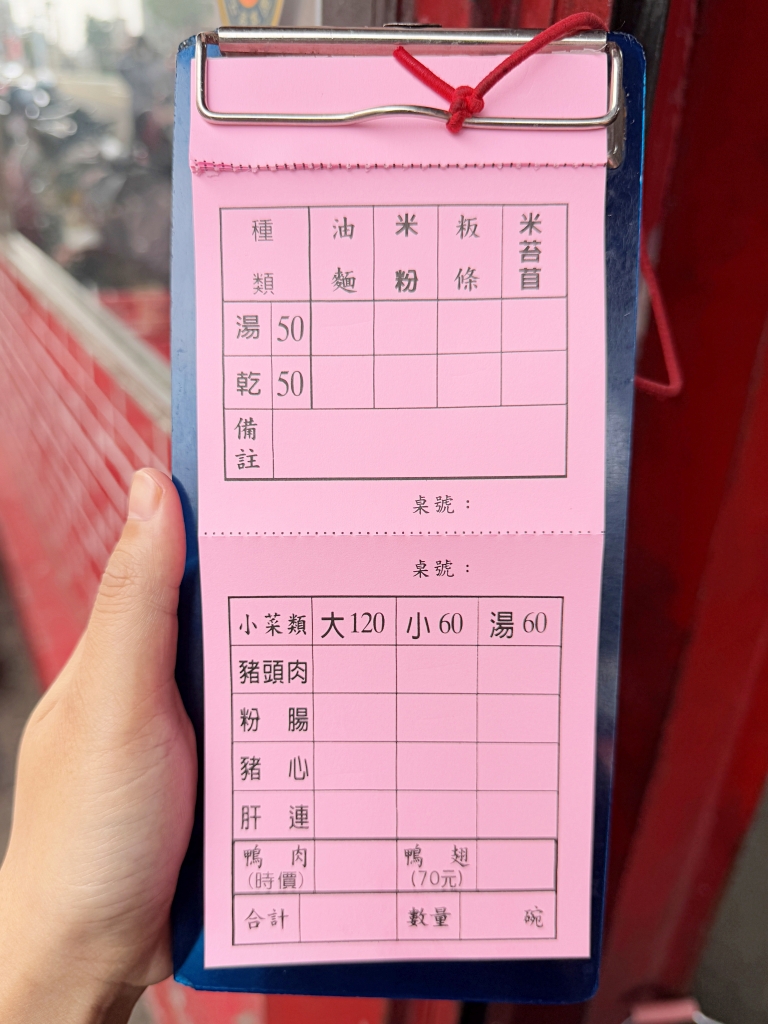 種類 油麵 米粉 粄條 米苔苜
湯 50
乾 50
備註
桌號：
桌號：
小菜類 大120 小60 湯60
豬頭肉
粉腸
豬心
肝連
鴨肉(時價) 鴨翅(70元)
合計 數量 碗